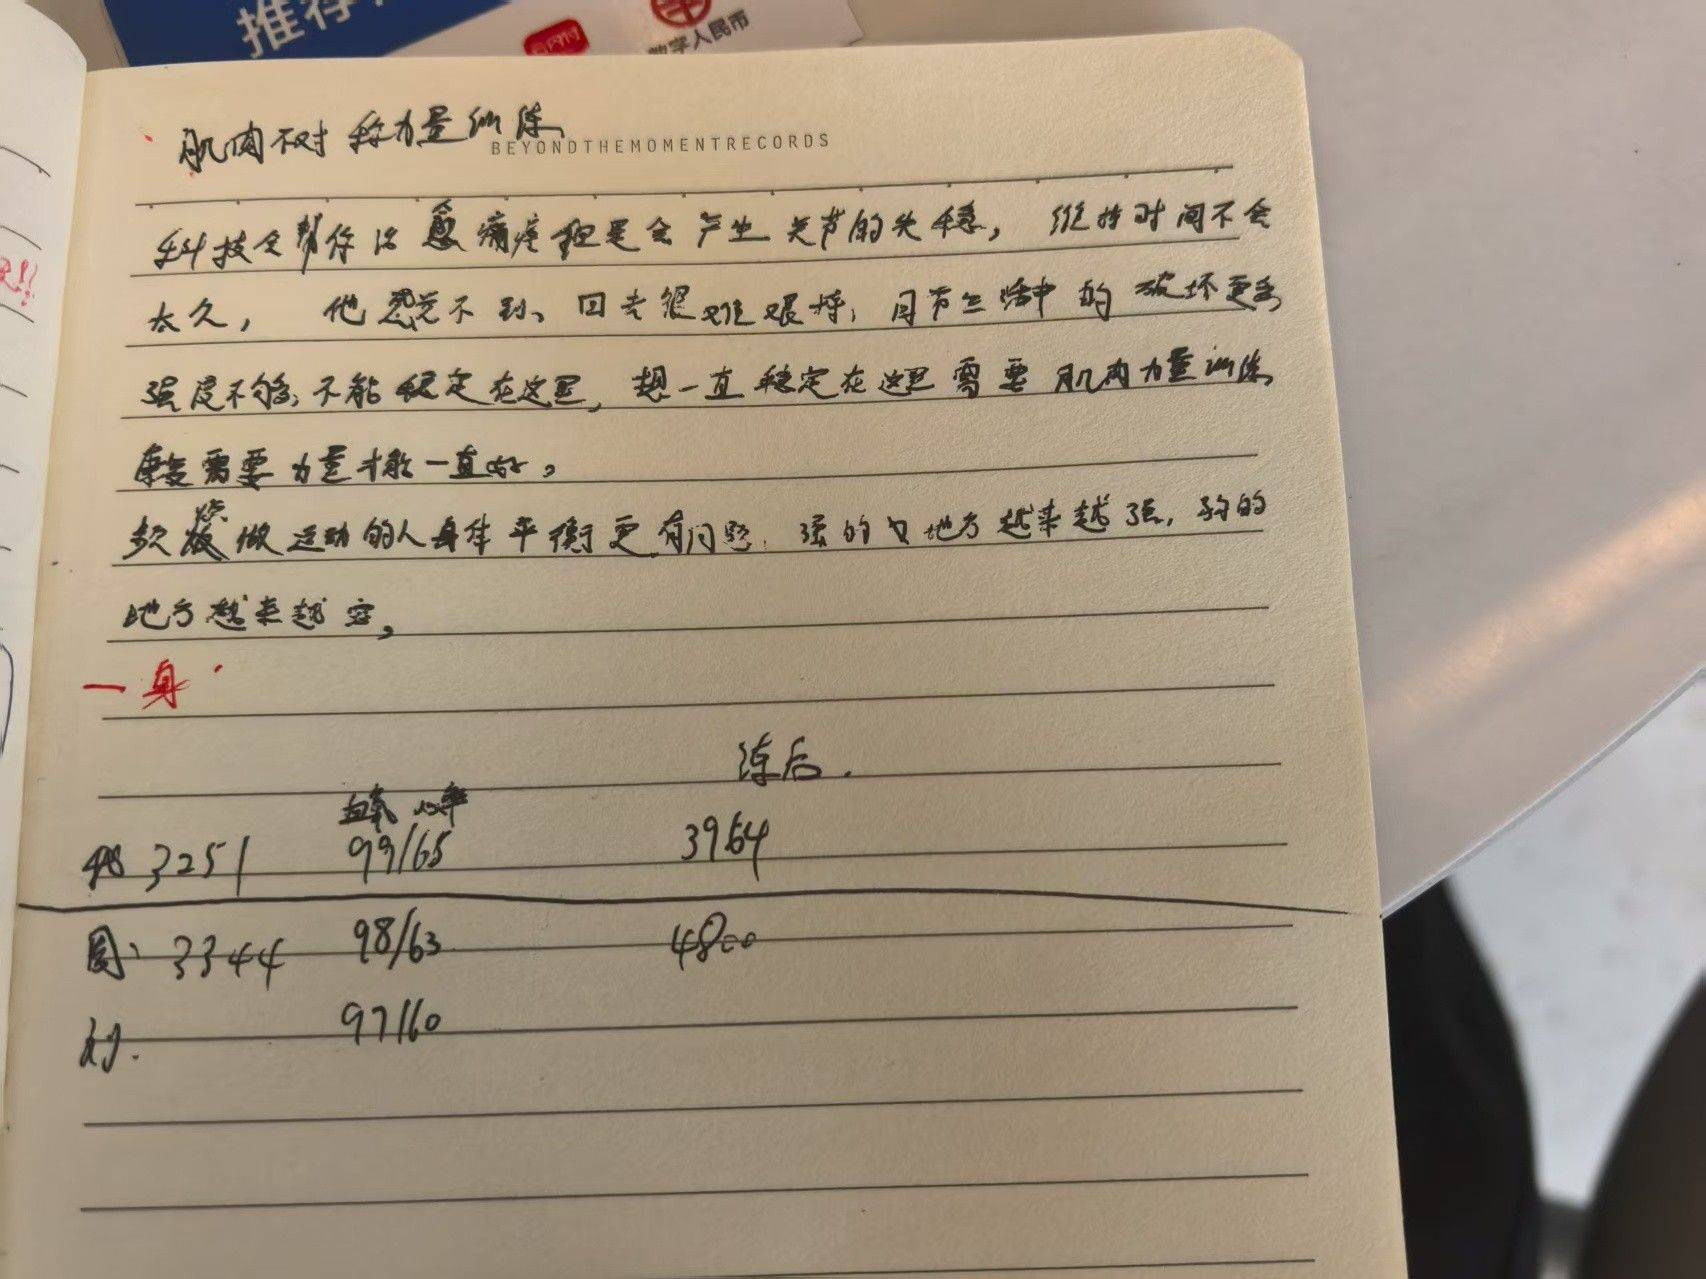 推荐
数字人民币
肌肉不对称力量训练
BEYONDTHEMOMENTRECORDS
科技会帮你治愈痛疼但是会产生关节的失稳，维持时间不会
太久， 他感觉不到、回去很难艰持，日节生活中的破坏更多
强度不够，不能稳定在这里，想一直稳定在这里需要肌肉力量训练
康复需要力量才能一直好。
做运动的人身体平衡更有问题，强的地方越来越强，弱的
地方越来越
一身
练后.
血氧 心率
3251 99/65 3964
3344 98/63 4800
刘. 97/60